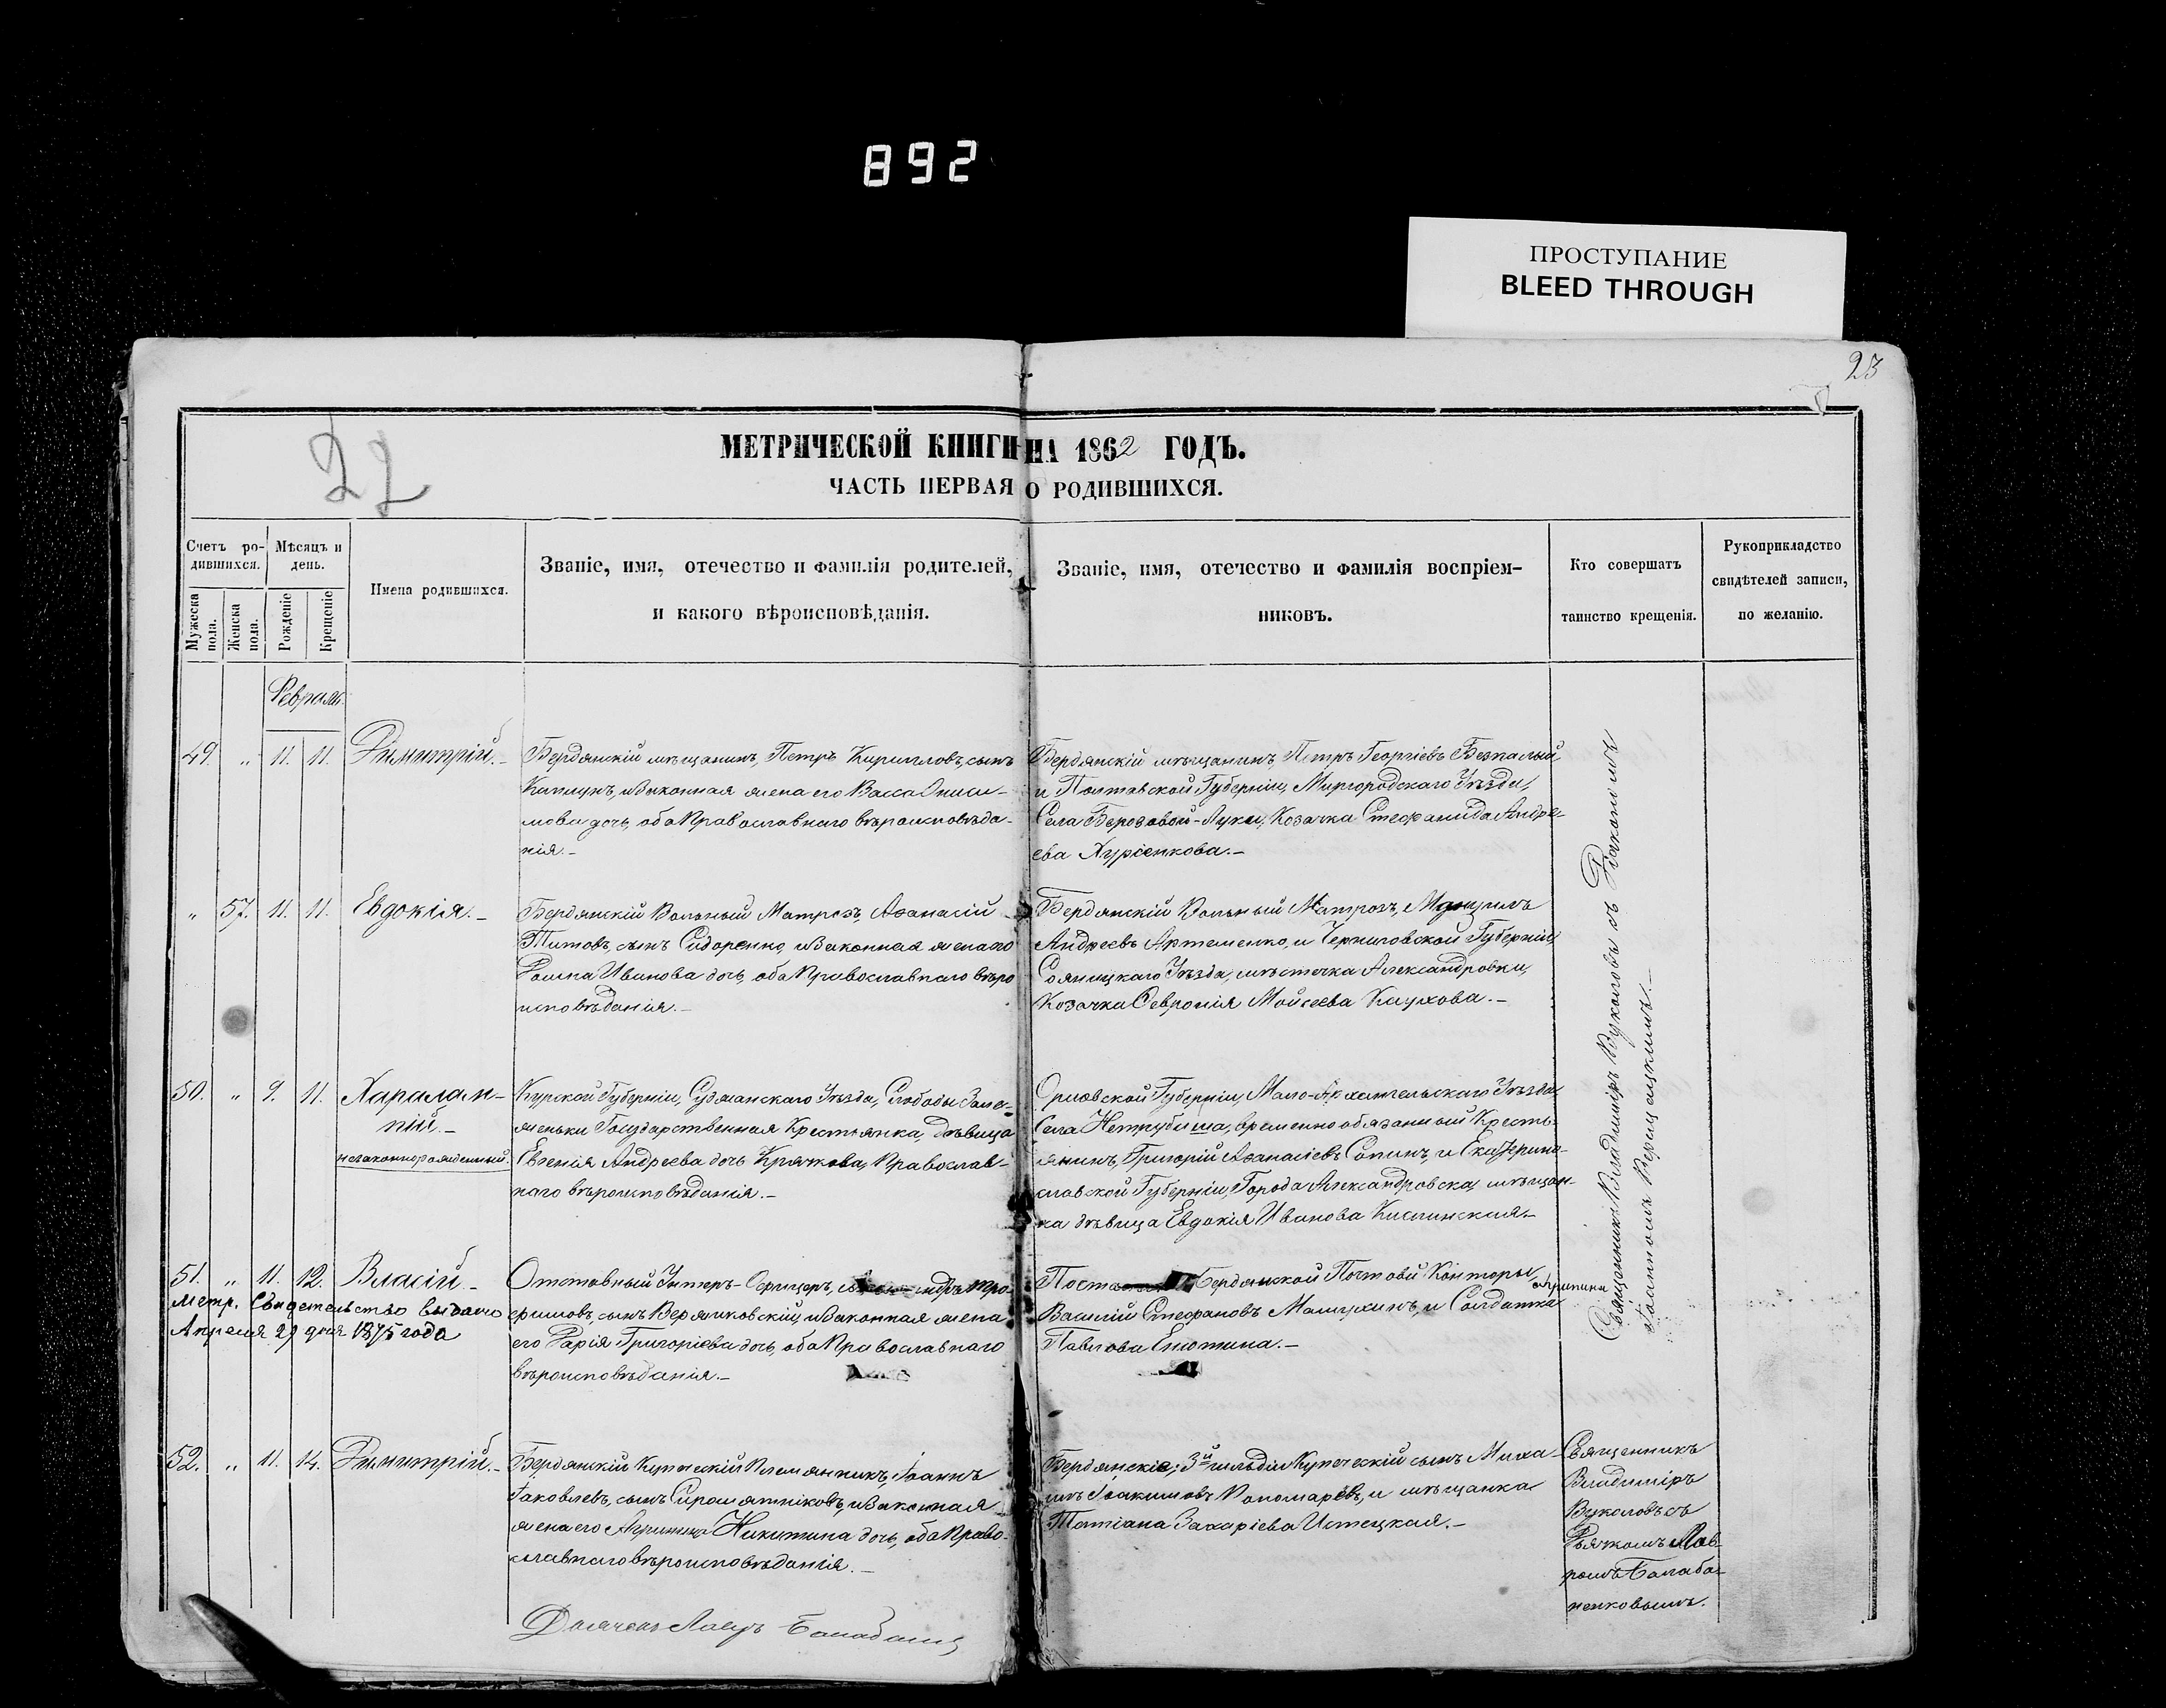 892
ПРОСТУПАНИЕ
BLEED THROUGH
23
22
МЕТРИЧЕСКОЙ КНИГИ НА 1862 ГОДЪ.
ЧАСТЬ ПЕРВАЯ О РОДИВШИХСЯ.
Счетъ ро-
дившихся.
Мужеска пола.
Женска пола.
Мѣсяцъ и
день.
Рожденіе
Крещеніе
Имена родившихся.
Званіе, имя, отечество и фамилія родителей,
и какого вѣроисповѣданія.
Званіе, имя, отечество и фамилія воспріем-
никовъ.
Кто совершатъ
таинство крещенія.
Рукоприкладство
свидѣтелей записи,
по желанію.
Февраль
49. " 11. 11. Димитрій.-
Бердянскій мѣщанинъ, Петръ Кирилловъ, сынъ
Капцунъ, и законная жена его Васса Ониси-
мова дочь, оба Православнаго вѣроисповѣда-
нія.-
Бердянскій мѣщанинъ Петръ Георгіевъ Безпалый
и Полтавской Губерніи, Миргородскаго Уѣзда,
Села Березовой-Луки, Козачка Стефанида Андре-
ева
" 57. 11. 11. Евдокія.-
Бердянскій Вольный Матрозъ, Аѳанасій
Титовъ, сынъ Сидоренко, и законная жена его
Домна Иванова дочь, оба Православнаго вѣро
исповѣданія.-
Бердянскій Вольный Матрозъ,
Андреевъ Артеменко, и Черниговской Губерніи
Уѣзда, мѣстечка Александровки,
Козачка Февронія Моисеева
50. " 9. 11. Харалам-
пій.-
незаконнорожденный.
Курской Губерніи, Суджанскаго Уѣзда, Слободы
Государственная Крестьянка, дѣвица
Евгенія Андреева дочь Крячкова, Православ-
наго вѣроисповѣданія.-
Орловской Губерніи, Мало-Архангельскаго Уѣзда
Села временно обязанный Кресть-
янинъ, Григорій Аѳанасіевъ Сопинъ, и Екатерино-
славской Губерніи, Города Александровска, мѣщан-
ка дѣвица Евдокія Иванова
51. " 11. 12. Власій.-
Метр. Свидетельство выдано
Апреля 29 дня 1875 года
Отставный Унтеръ-Офицеръ,
сынъ и законная жена
его Дарія Григоріева дочь, оба Православнаго
вѣроисповѣданія.-
Бердянской Почтовой Конторы,
Василій Стефановъ и Солдатка Агрипина
Павлова Енютина.-
Священникъ Владиміръ Вуколовъ съ Діакономъ
Іоанномъ
52. " 11. 14. Димитрій.-
Бердянскій Купеческій Племянникъ, Іоаннъ
Іаковлевъ, сынъ Сиромятниковъ, и законная
жена его Агрипина Никитина дочь, оба Право-
славнаго вѣроисповѣданія.-
Бердянскіе; 3й гильдіи Купеческій сынъ Миха-
илъ Іоакимовъ Пономаревъ, и мѣщанка
Татіана Захаріева Истецкая.-
Священникъ
Владиміръ
Вуколовъ съ
Дьячкомъ Лав-
ромъ Балаба-
ненковымъ.
Дьячокъ Лавръ